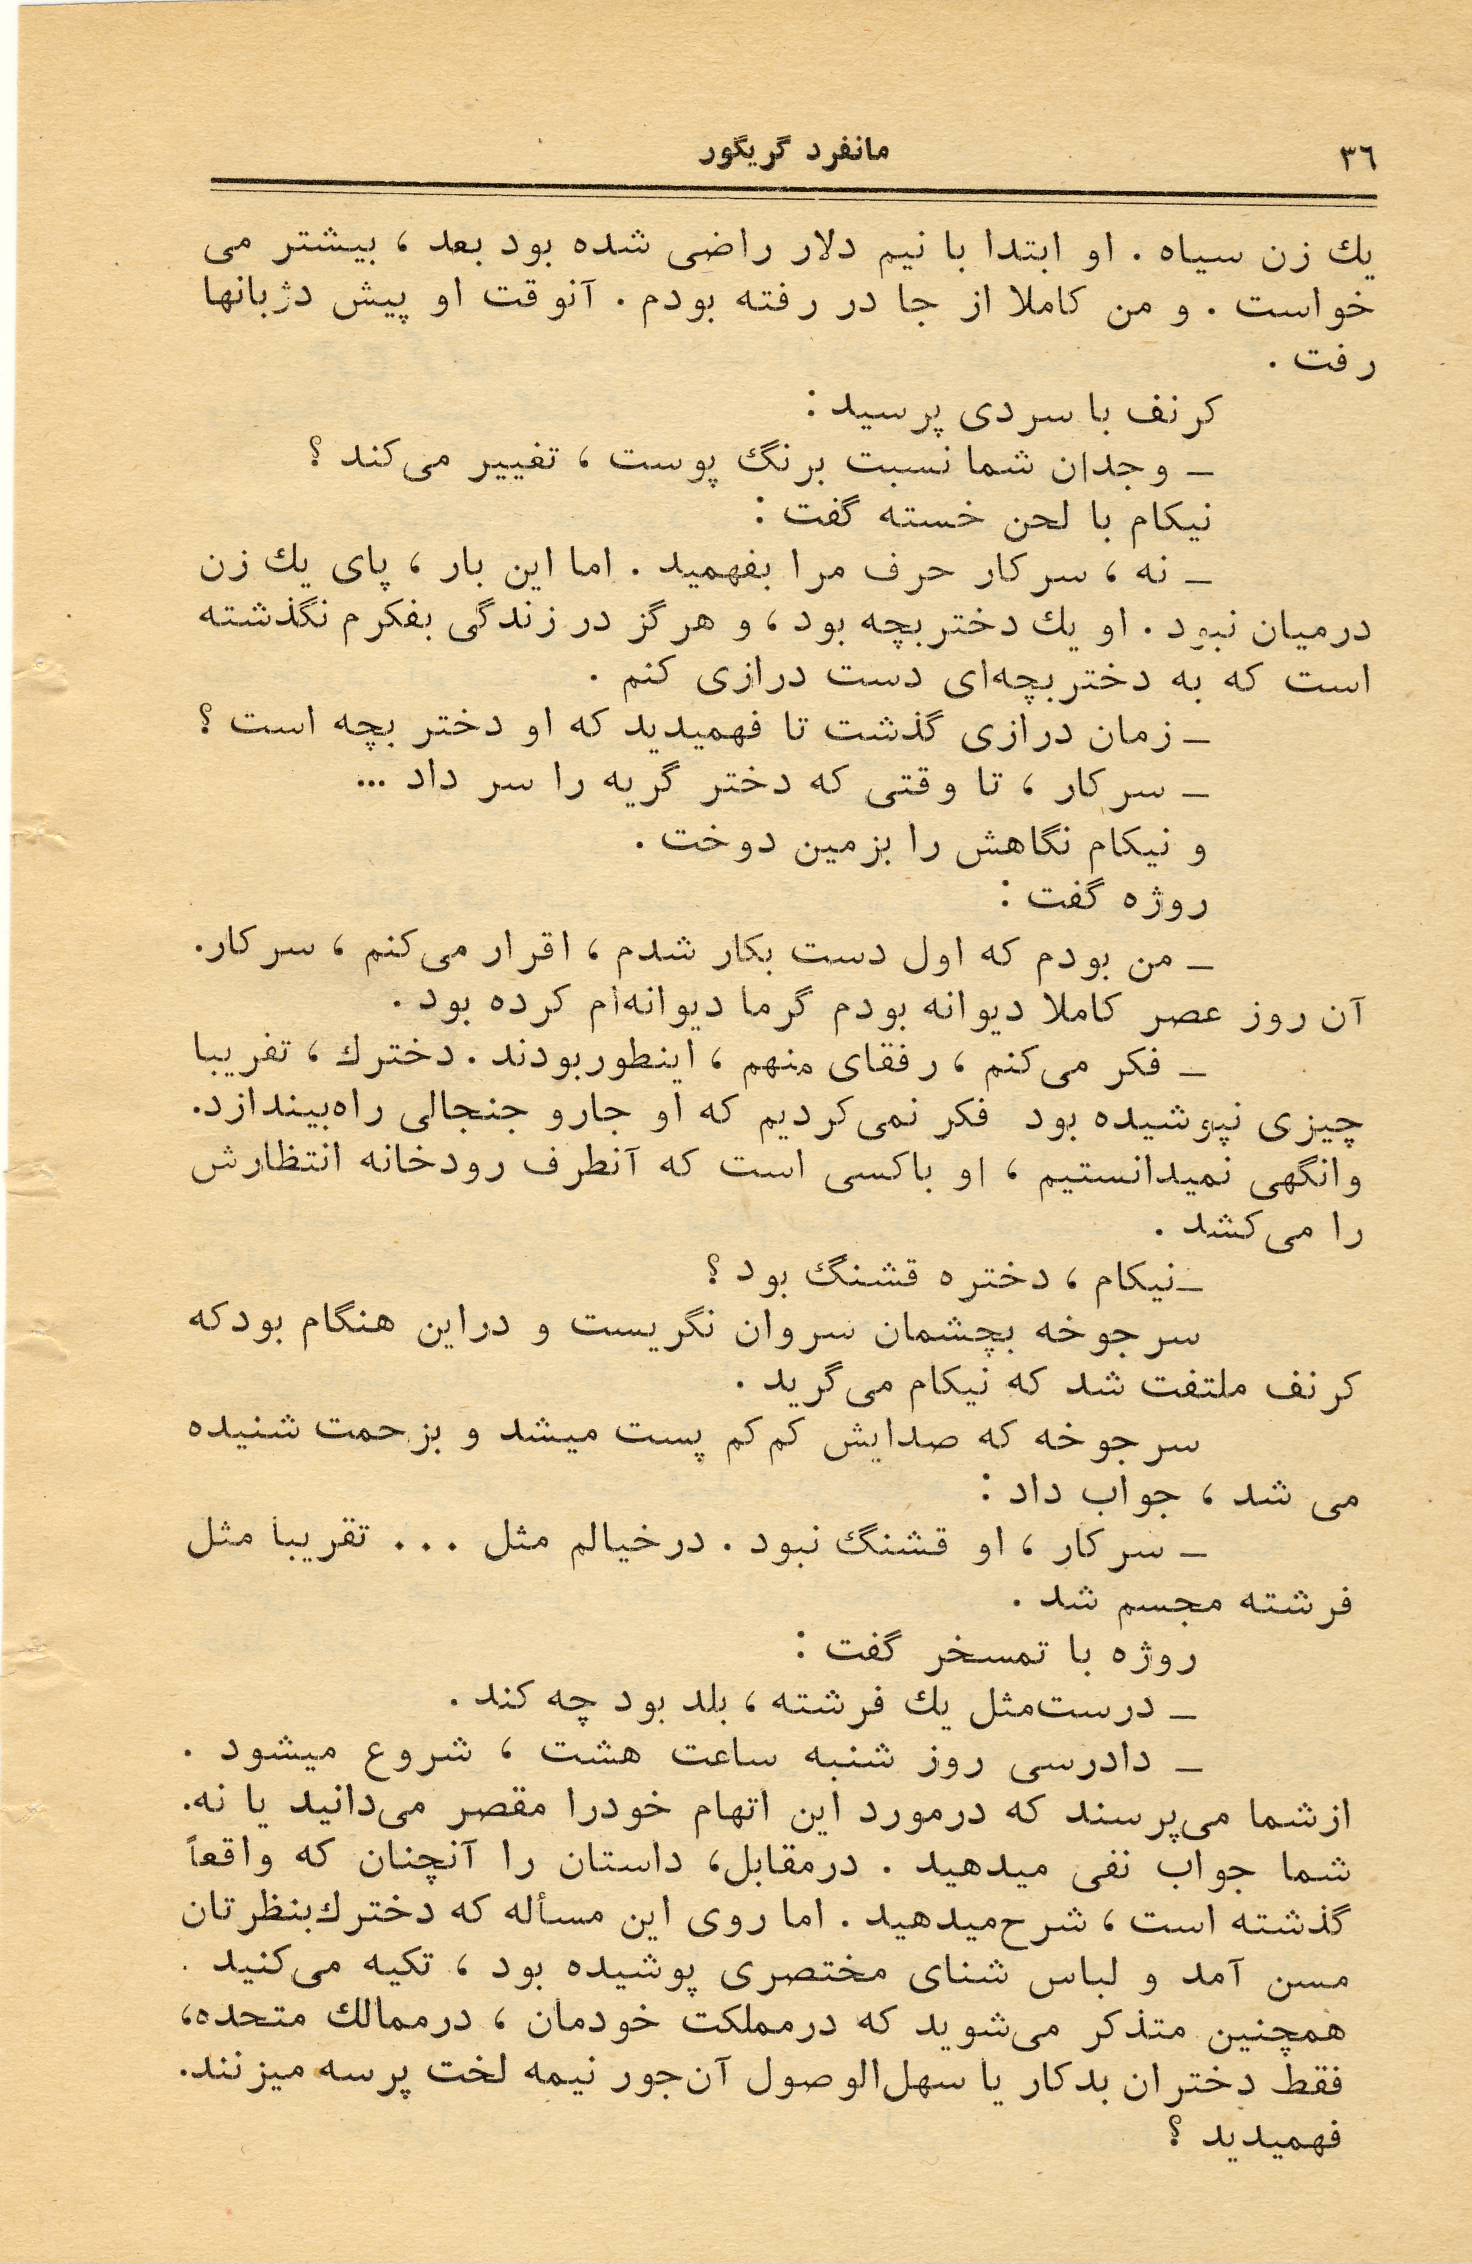 ٣٦
مانفرد گریگور
یك زن سیاه . او ابتدا با نیم دلار راضی شده بود بعد ، بیشتر می
خواست . و من کاملا از جا در رفته بودم . آنوقت او پیش دژبانها
رفت .
کرنف با سردی پرسید :
ـ وجدان شما نسبت برنگ پوست ، تغییر می‌کند ؟
نیکام با لحن خسته گفت :
ـ نه ، سرکار حرف مرا بفهمید . اما این بار ، پای یك زن
درمیان نبود . او یك دختربچه بود ، و هرگز در زندگی بفکرم نگذشته
است که به دختربچه‌ای دست درازی کنم .
ـ زمان درازی گذشت تا فهمیدید که او دختر بچه است ؟
ـ سرکار ، تا وقتی که دختر گریه را سر داد ...
و نیکام نگاهش را بزمین دوخت .
روژه گفت :
ـ من بودم که اول دست بکار شدم ، اقرار می‌کنم ، سرکار.
آن روز عصر کاملا دیوانه بودم گرما دیوانه‌ام کرده بود .
ـ فکر می‌کنم ، رفقای منهم ، اینطور بودند . دخترك ، تقریبا
چیزی نپوشیده بود فکر نمی‌کردیم که او جارو جنجالی راه‌بیندازد.
وانگهی نمیدانستیم ، او باکسی است که آنطرف رودخانه انتظارش
را می‌کشد .
ـ نیکام ، دختره قشنگ بود ؟
سرجوخه بچشمان سروان نگریست و دراین هنگام بودکه
کرنف ملتفت شد که نیکام می‌گرید .
سرجوخه که صدایش کم‌کم پست میشد و بزحمت شنیده
می شد ، جواب داد :
ـ سرکار ، او قشنگ نبود . درخیالم مثل ... تقریبا مثل
فرشته مجسم شد .
روژه با تمسخر گفت :
ـ درست‌مثل یك فرشته ، بلد بود چه کند .
ـ دادرسی روز شنبه ساعت هشت ، شروع میشود .
ازشما می‌پرسند که درمورد این اتهام خودرا مقصر می‌دانید یا نه.
شما جواب نفی میدهید . درمقابل، داستان را آنچنان که واقعاً
گذشته است ، شرح‌میدهید . اما روی این مسأله که دخترك بنظرتان
مسن آمد و لباس شنای مختصری پوشیده بود ، تکیه می‌کنید .
همچنین متذکر می‌شوید که درمملکت خودمان ، درممالك متحده،
فقط دختران بدکار یا سهل‌الوصول آن‌جور نیمه لخت پرسه میزنند.
فهمیدید ؟